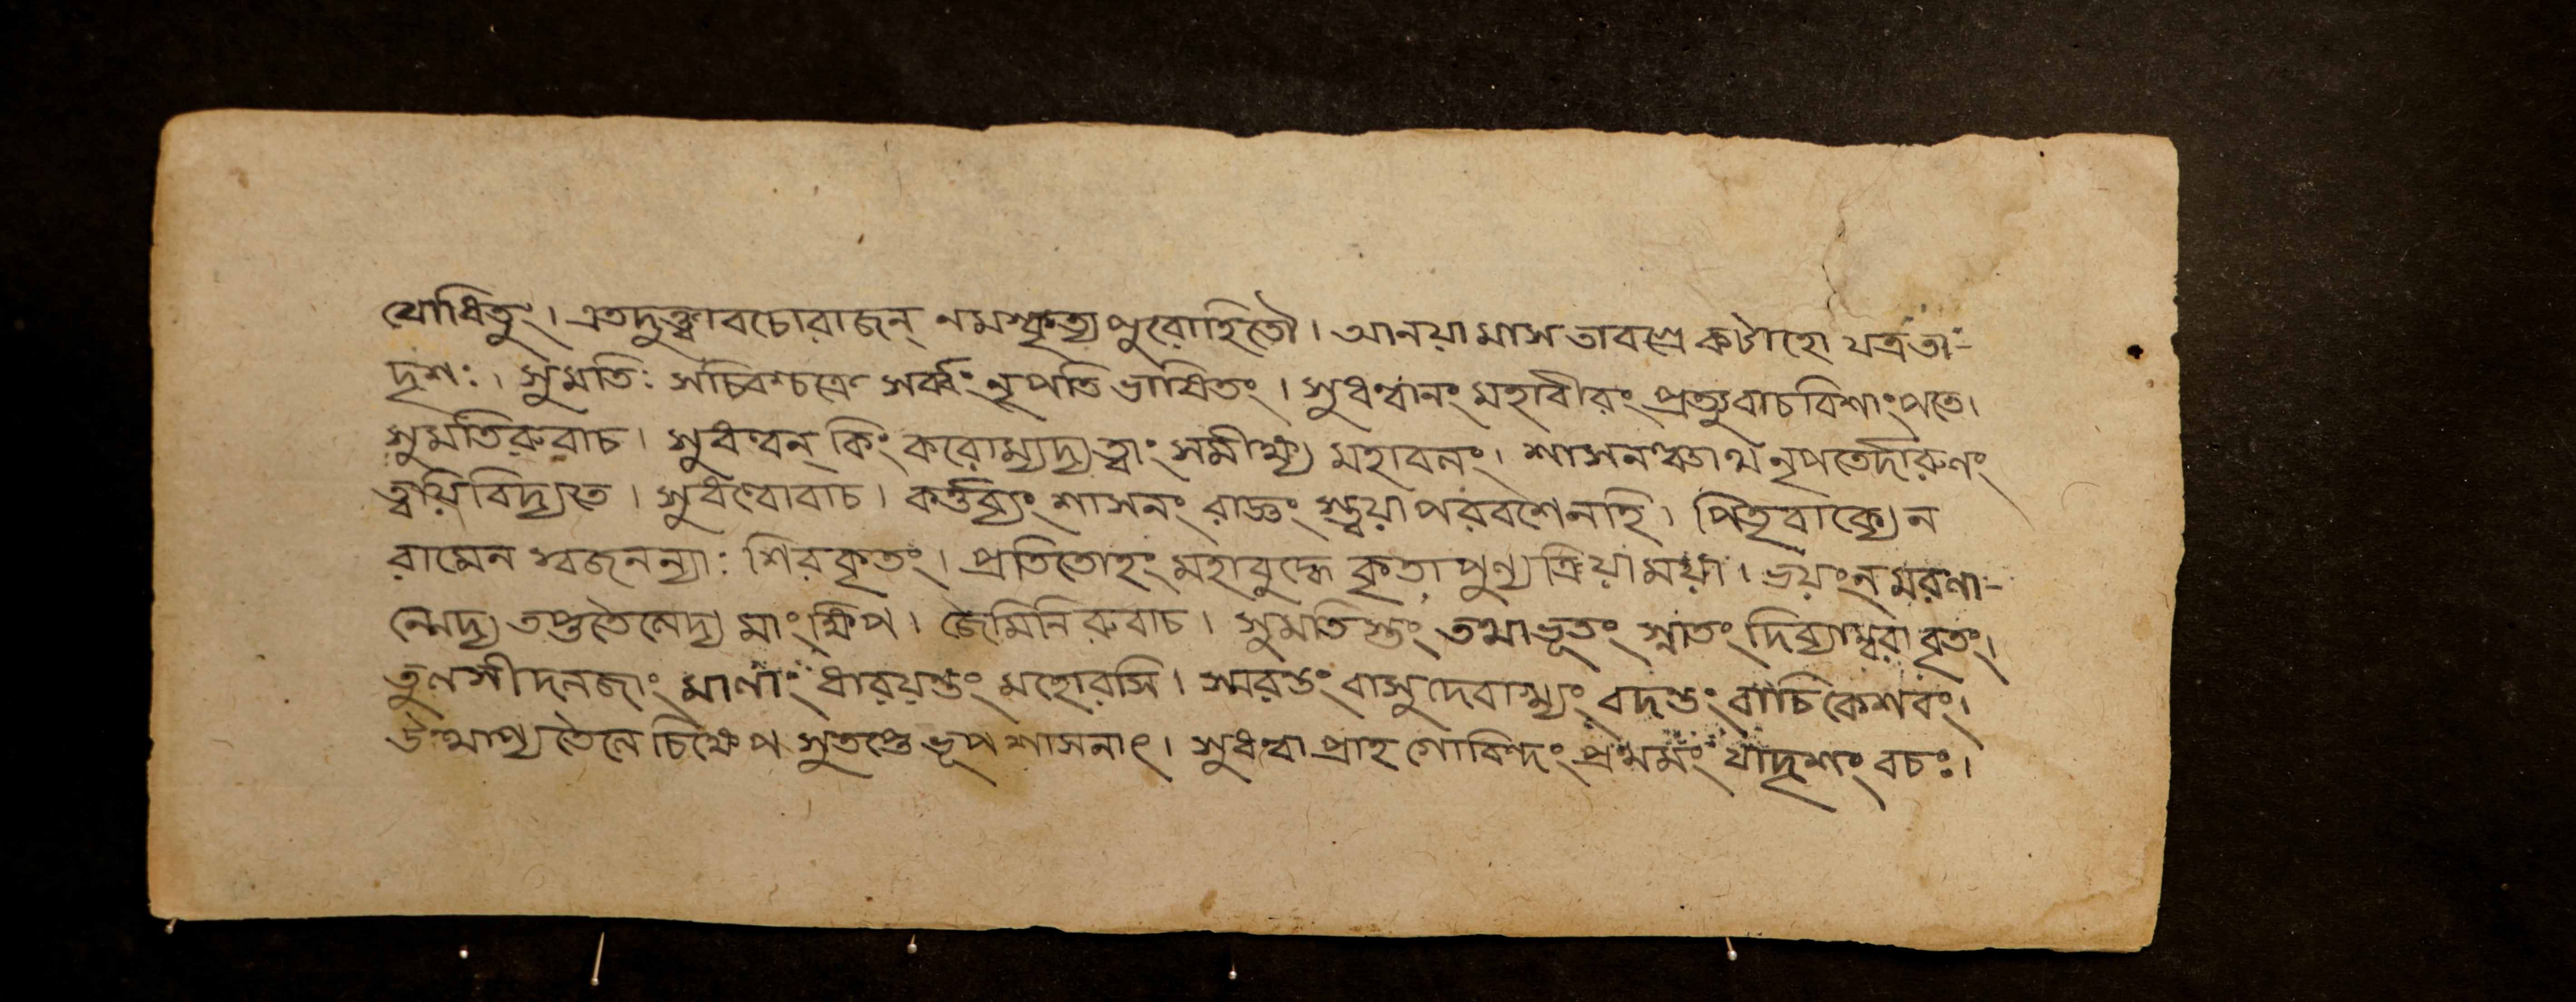 যোধিতুং। এতদুক্ত্বাবচোরাজন্ নমস্কৃত্য পুরোহিতৌ। আনয়ামাস তাবগ্রে কটাহো যত্রতা-
দৃশঃ। সুমতিঃ সচিবশ্চক্রে সর্ব্বং নৃপতি ভাষিতং। সুধন্বানং মহাবীরং প্রত্যুবাচ বিশাংপতে।
সুমতিরুবাচ। সুধন্বন্ কিং করোম্যদ্য ত্বাং সমীক্ষ্য মহাবলং। শাসনঞ্চাথ নৃপতের্দারুণং
ত্বয়ি বিদ্যতে। সুধন্বোবাচ। কর্ত্তব্যং শাসনং রাজ্ঞং স্ত্বয়া পরবশেনহি। পিতৃবাক্যেন
রামেন স্বজনন্যাঃ শিরকৃতং। প্রতিতোহং মহাবুদ্ধে কৃতা পুণ্য ক্রিয়া ময়া। ভয়ংন মরণা-
ন্মেদ্য তপ্ততৈলেদ্য মাং ক্ষিপ। জৈমিনি রুবাচ। সুমতিস্তং তথাভূতং স্নাতং দিব্যাম্বরা বৃতং।
তুলসীদলজাং মালাং ধারয়ন্তং মহোরসি। স্মরন্তং বাসুদেবাখ্যং বদন্তং বাচি কেশবং।
উত্থাপ্য তৈলে চিক্ষেপ সুতপ্তে ভূপ শাসনাৎ। সুধন্বা প্রাহ গোবিন্দং প্রথমং যাদৃশং বচঃ।